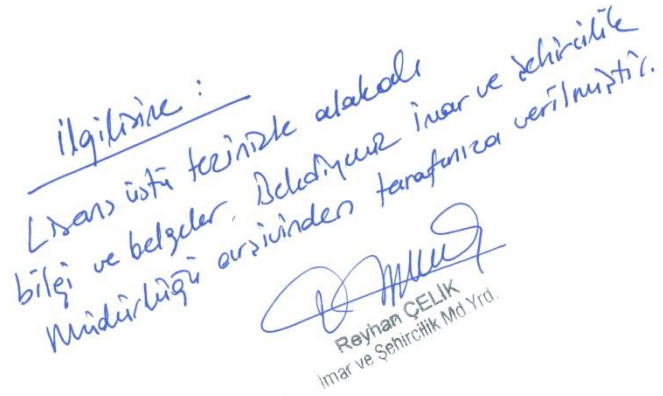 İlgilisine :
Lisans üstü tezinizle alakalı
bilgi ve belgeler. Belediyemiz İmar ve Şehircilik
Müdürlüğü arşivinden tarafınıza verilmiştir.
Reyhan ÇELİK
İmar ve Şehircilik Md.Yrd.